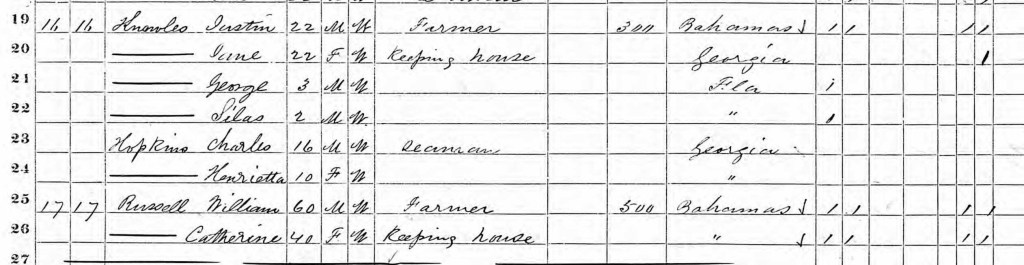 19 16 16 Knowles Justin 22 M W Farmer 300 Bahamas / / / / /
20 —— Jane 22 F W Keeping house Georgia /
21 —— George 3 M W Fla /
22 —— Silas 2 M W " /
23 Hopkins Charles 16 M W Seaman Georgia
24 —— Henrietta 10 F W "
25 17 17 Russell William 60 M W Farmer 500 Bahamas / / / / /
26 —— Catherine 40 F W Keeping house " / / / / /
27